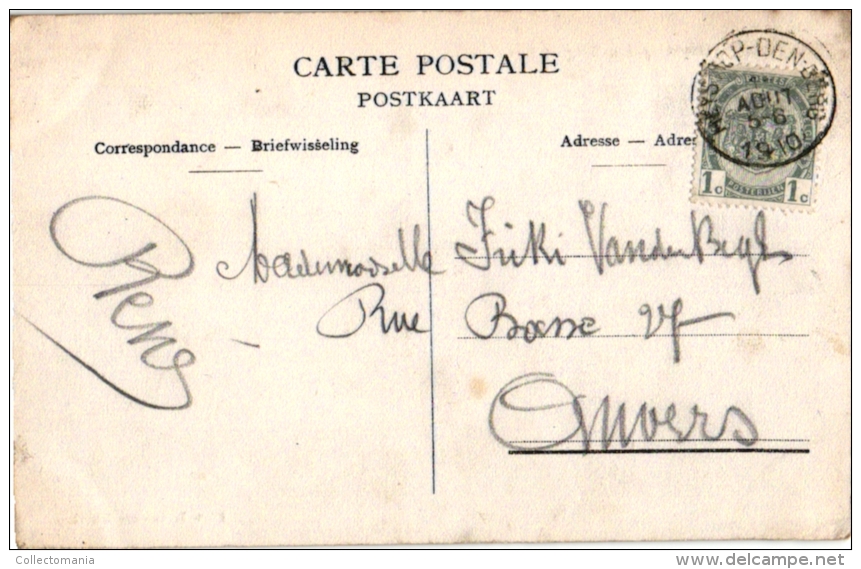 CARTE POSTALE
POSTKAART
Correspondance — Briefwisseling
Adresse — Adre
HEYST-OP-DEN-BERG
AOUT
5-6
1910
POSTERIJEN
1c 1c
René
Mademoiselle
Rue Basse 27
Anvers
Collectomania
delcampe.net